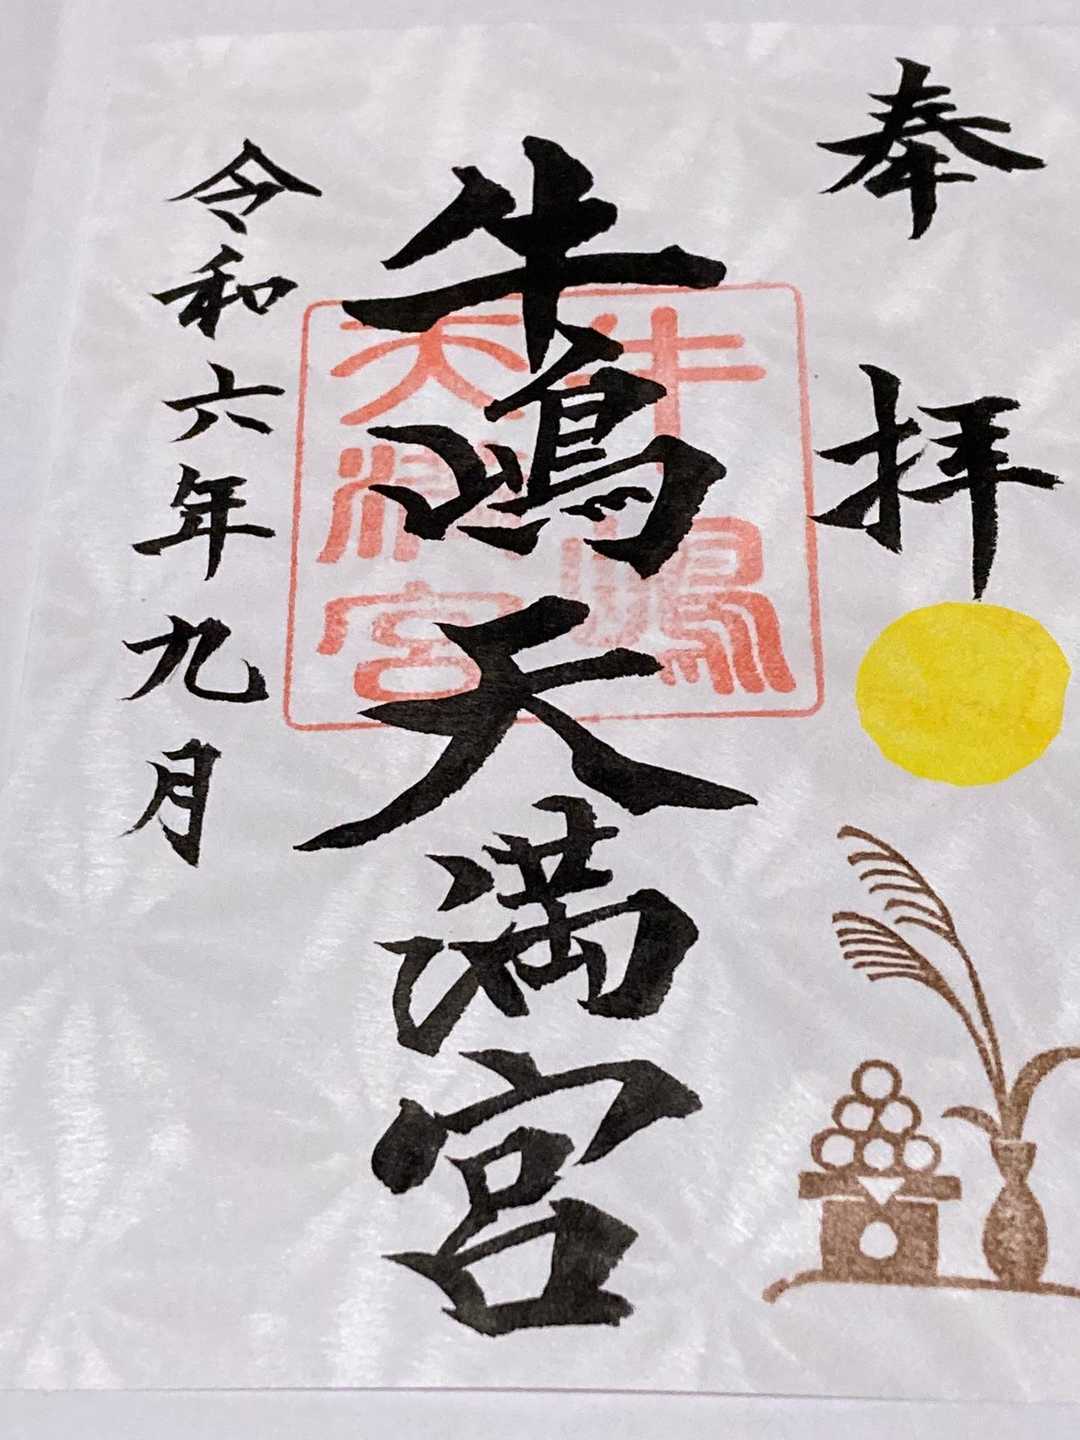 奉拝
牛嶋天満宮
牛嶋
天満宮
令和六年九月